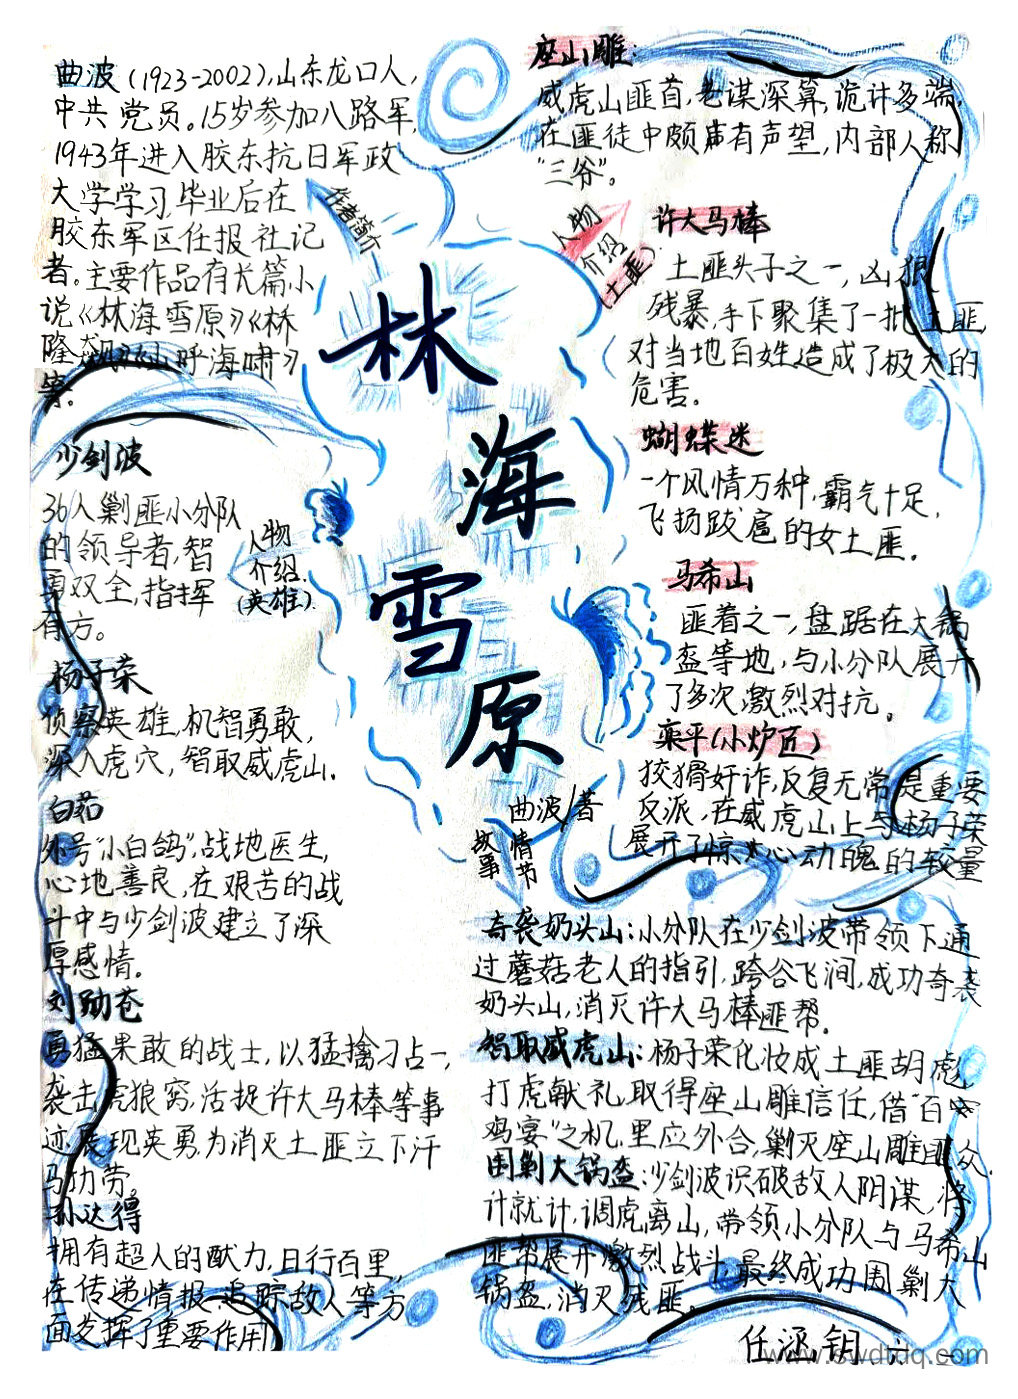 曲波(1923-2002),山东龙口人,
中共党员。15岁参加八路军,
1943年进入胶东抗日军政
大学学习,毕业后在
胶东军区任报社记
者。主要作品有长篇小
说《林海雪原》《桥
隆飙》《山呼海啸》
等。
作者简介
林
海
雪
原
曲波/著
少剑波
36人剿匪小分队
的领导者,智
勇双全,指挥
有方。
人物
介绍.
(英雄).
杨子荣
侦察英雄,机智勇敢,
深入虎穴,智取威虎山.
白茹
外号"小白鸽",战地医生,
心地善良,在艰苦的战
斗中与少剑波建立了深
厚感情.
刘勋苍
勇猛果敢的战士,以猛擒刁占一,
袭击虎狼窝,活捉许大马棒等事
迹,展现英勇,为消灭土匪立下汗
马功劳。
孙达得
拥有超人的耐力,日行百里,
在传递情报,追踪敌人等方
面发挥了重要作用
座山雕:
威虎山匪首,老谋深算,诡计多端,
在匪徒中颇具有声望,内部人称
"三爷"。
人物
介绍
(土匪).
许大马棒
土匪头子之一,凶狠
残暴,手下聚集了一批土匪,
对当地百姓造成了极大的
危害。
蝴蝶迷
一个风情万种,霸气十足,
飞扬跋扈的女土匪.
马希山
匪着之一,盘踞在大锅
盔等地,与小分队展开
了多次激烈对抗。
栾平(小炉匠)
狡猾奸诈,反复无常是重要
反派,在威虎山上与杨子荣
展开了惊心动魄的较量
故事
情节
奇袭奶头山:小分队在少剑波带领下通
过蘑菇老人的指引,跨谷飞涧,成功奇袭
奶头山,消灭许大马棒匪帮.
智取威虎山:杨子荣化妆成土匪胡彪,
打虎献礼,取得座山雕信任,借"百
鸡宴"之机,里应外合,剿灭座山雕匪众.
围剿大锅盔:少剑波识破敌人阴谋,将
计就计,调虎离山,带领小分队与马希山
匪帮展开激烈战斗,最终成功围剿大
锅盔,消灭残匪.
任涵钥 六
www.swdtdq.com